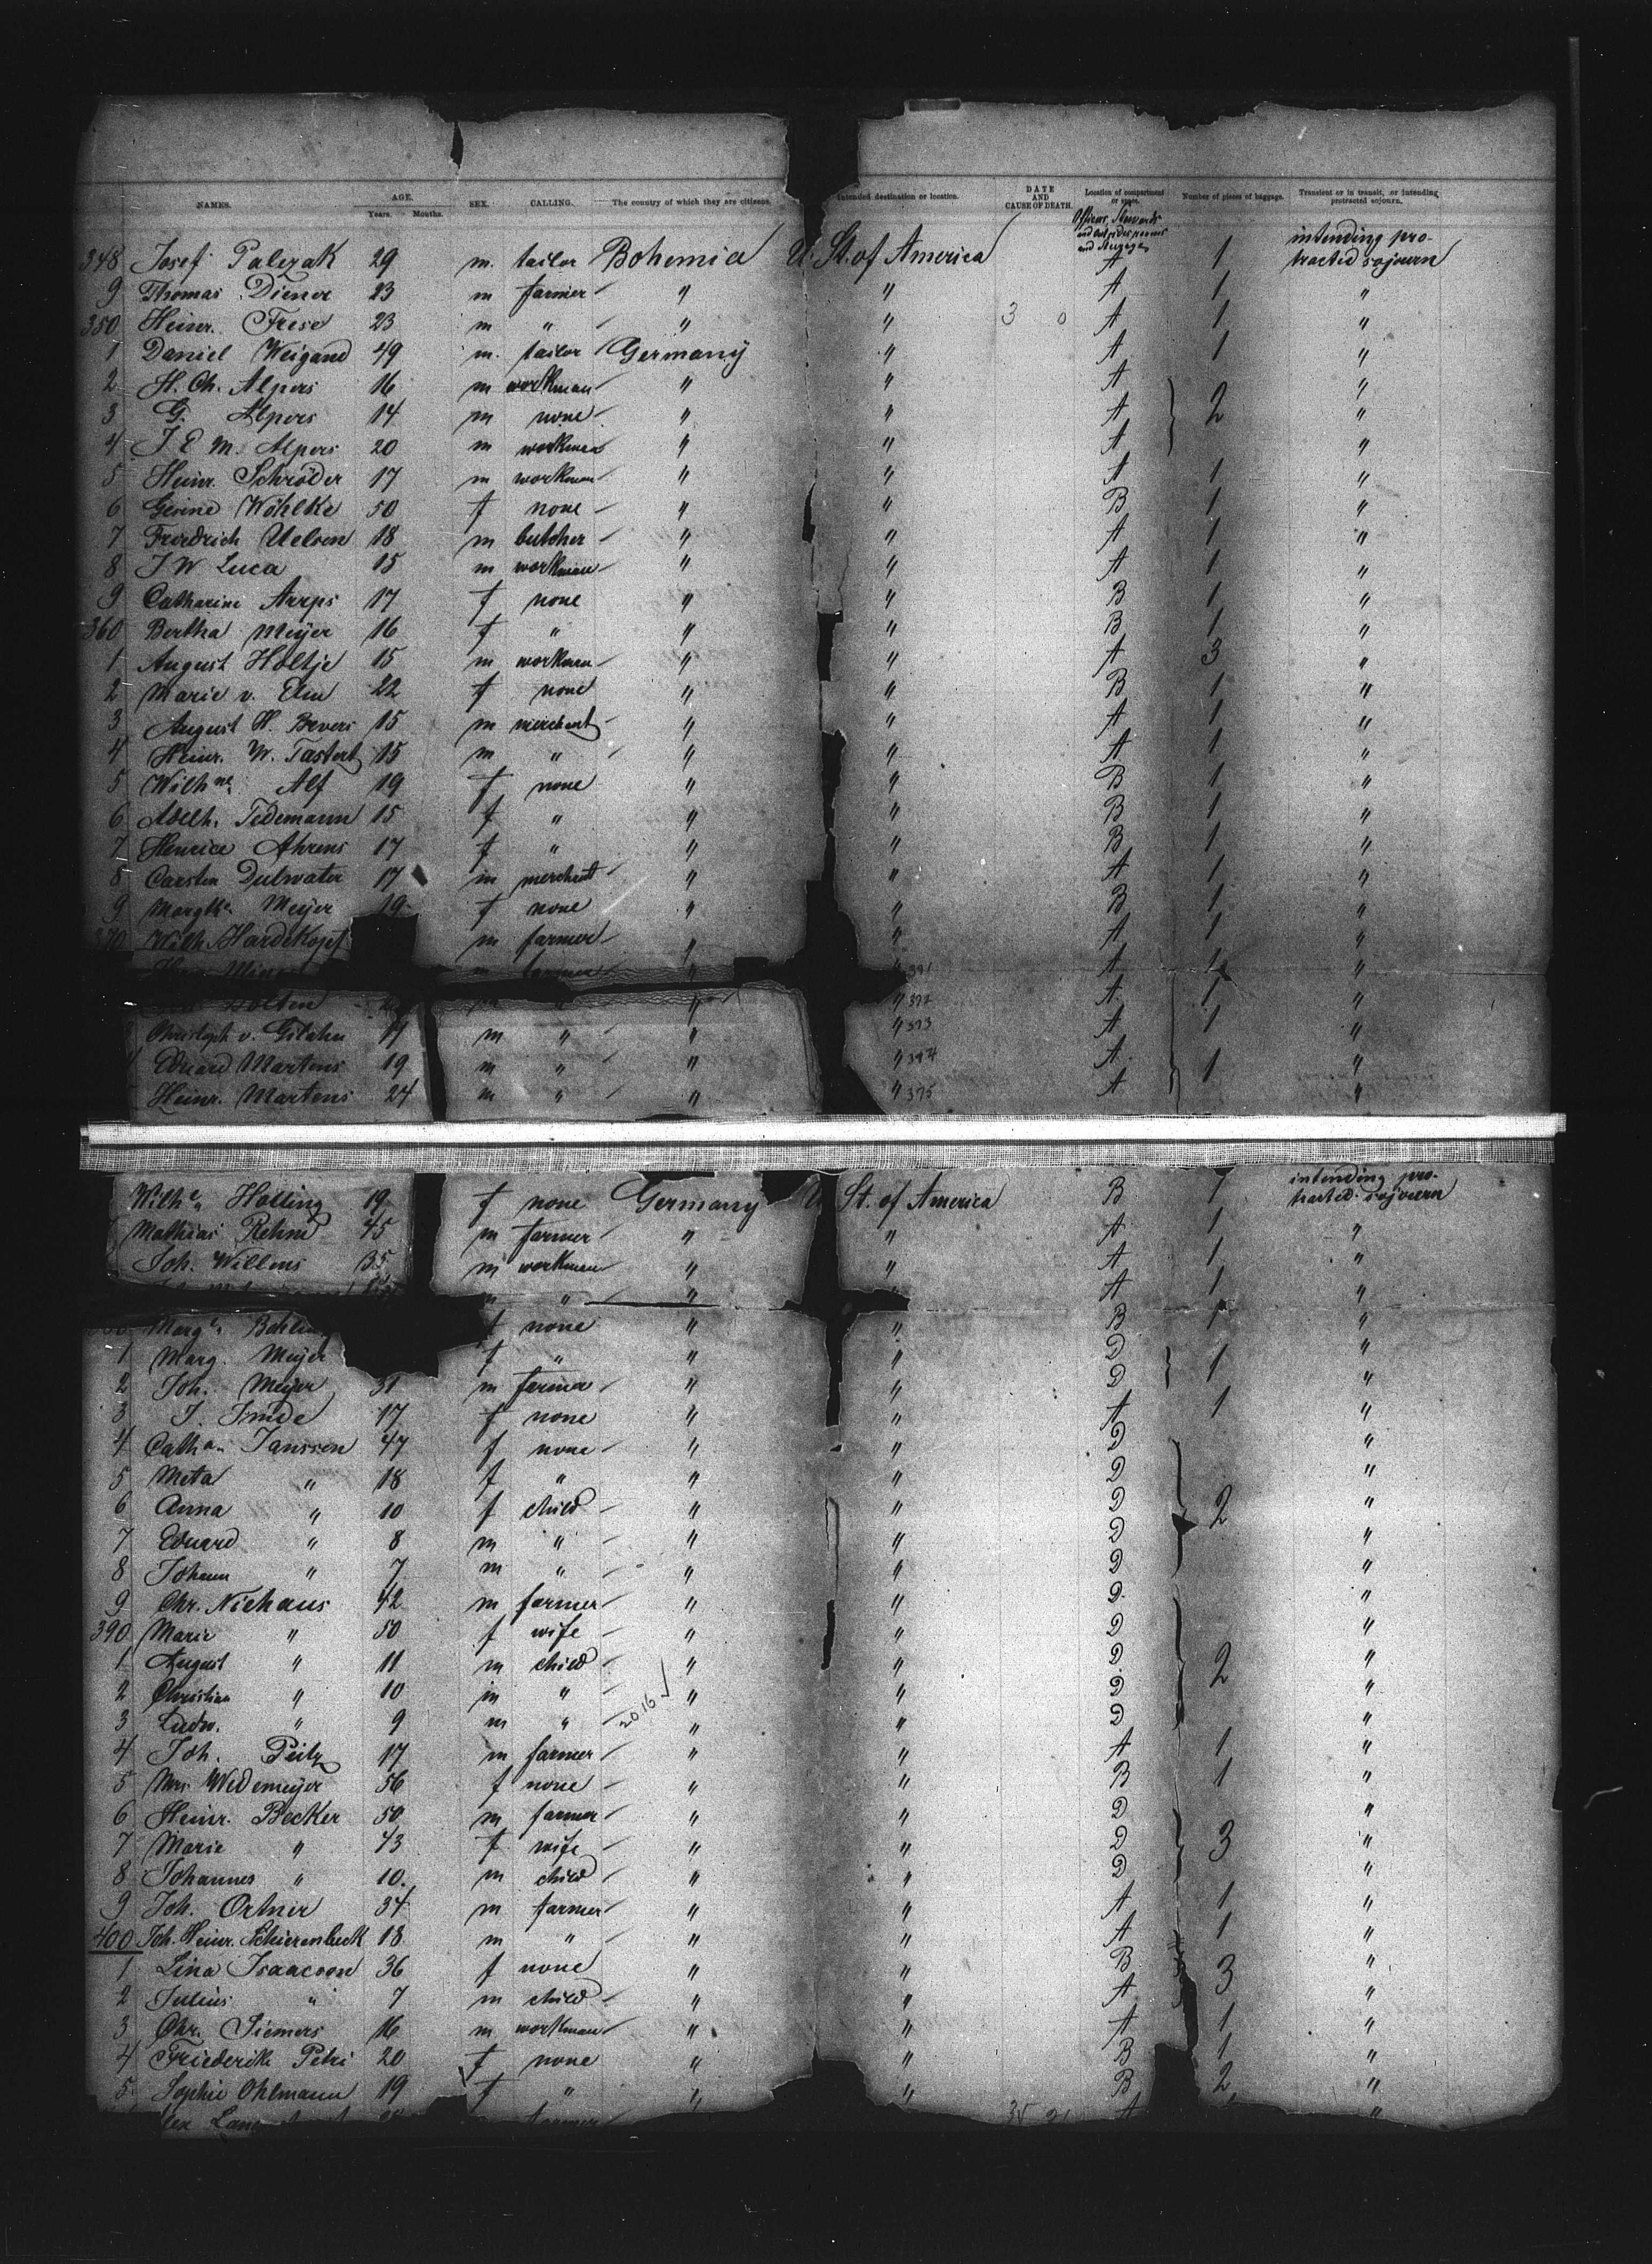 NAMES. AGE. Years. Months. SEX. CALLING. The country of which they are citizens. Intended destination or location. DATE AND CAUSE OF DEATH. Location of compartment or space. Number of pieces of baggage. Transient or in transit, or intending protracted sojourn.
and Steerage intending pro-
348 Josef Palezak 29 m. tailor Bohemia U. St. of America A 1 tracted sojourn
9 Thomas Diener 23 m farmer " " A 1 "
350 Heinr. Frese 23 m " " " 3 0 A 1 "
1 Daniel Weigand 49 m. tailor Germany " A 1 "
2 H. Ch. Alpers 16 m workman " " A "
3 G. Alpers 14 m none " " A 2 "
4 J E M. Alpers 20 m workman " " A "
5 Heinr. Schröder 17 m workman " " A 1 "
6 Gesine Wöhlke 50 f none " " B 1 "
7 Friedrich Uelsen 18 m butcher " " A 1 "
8 J W Luca 15 m workman " " A 1 "
9 Catharine Arrps 17 f none " " B 1 "
360 Bertha Meyer 16 f " " " B 1 "
1 August Holtje 15 m workman " " A 3 "
2 Marie v. Elm 22 f none " " B 1 "
3 August H. Bevers 15 m merchant " " A 1 "
4 Heinr. W. Tastert 15 m " " " A 1 "
5 Wilhne. Alf 19 f none " " B 1 "
6 Adelh. Tedemann 15 f " " " B 1 "
7 Henrice Ahrens 17 f " " " B 1 "
8 Carsten Dulwater 17 m merchant " " A 1 "
9 Margthe. Meyer 19 f none " " B 1 "
370 Wilh. Hardekopf m farmer " " A 1 "
m farmer " " 371 A 1 "
Holten " " " 372 A 1 "
Christoph v. Glahn 17 m " " " 373 A 1 "
4 Eduard Martens 19 m " " " 374 A 1 "
Heinr. Martens 24 m " " " 375 A "
intending pro-
Wilhe. Holling 19 f none Germany U St. of America B 1 tracted sojourn
Mathias Rehm 45 m farmer " " A 1 "
Joh. Willens 35 m workman " " A 1 "
m " " " A 1 "
Marge. Bohling f none " " B 1 "
1 Marg. Meyer f " " " D 1 "
2 Joh. Meyer 31 m farmer " " D "
3 J. Finde 17 f none " " A 1 "
4 Catha. Janssen 47 f none " " D "
5 Meta " 18 f " " " D "
6 Anna " 10 f child " " D 2 "
7 Eduard " 8 m " " " D "
8 Johann " 7 m " " " D "
9 Chr. Niehaus 42 m farmer " " D "
390 Marie " 50 f wife " " D "
1 August " 11 m child " " D 2 "
2 Christian " 10 m " " " D "
3 Ludw. " 9 m " 2016 " " D "
4 Joh. Peitz 17 m farmer " " A 1 "
5 Mrs Wedemeyer 56 f none " " B 1 "
6 Heinr. Becker 50 m farmer " " D "
7 Marie " 43 f wife " " D 3 "
8 Johannes " 10. m child " " D "
9 Joh. Ortner 34 m farmer " " A 1 "
400 Joh. Heinr. Schierenbeck 18 m " " " A 1 "
1 Lina Isaacson 36 f none " " B 3 "
2 Julius " 7 m child " " A "
3 Chr. Siemers 16 m workman " " A 1 "
4 Friederike Petri 20 f none " " B 1 "
5 Sophie Ohlmann 19 f " " " B 2 "
farmer A "